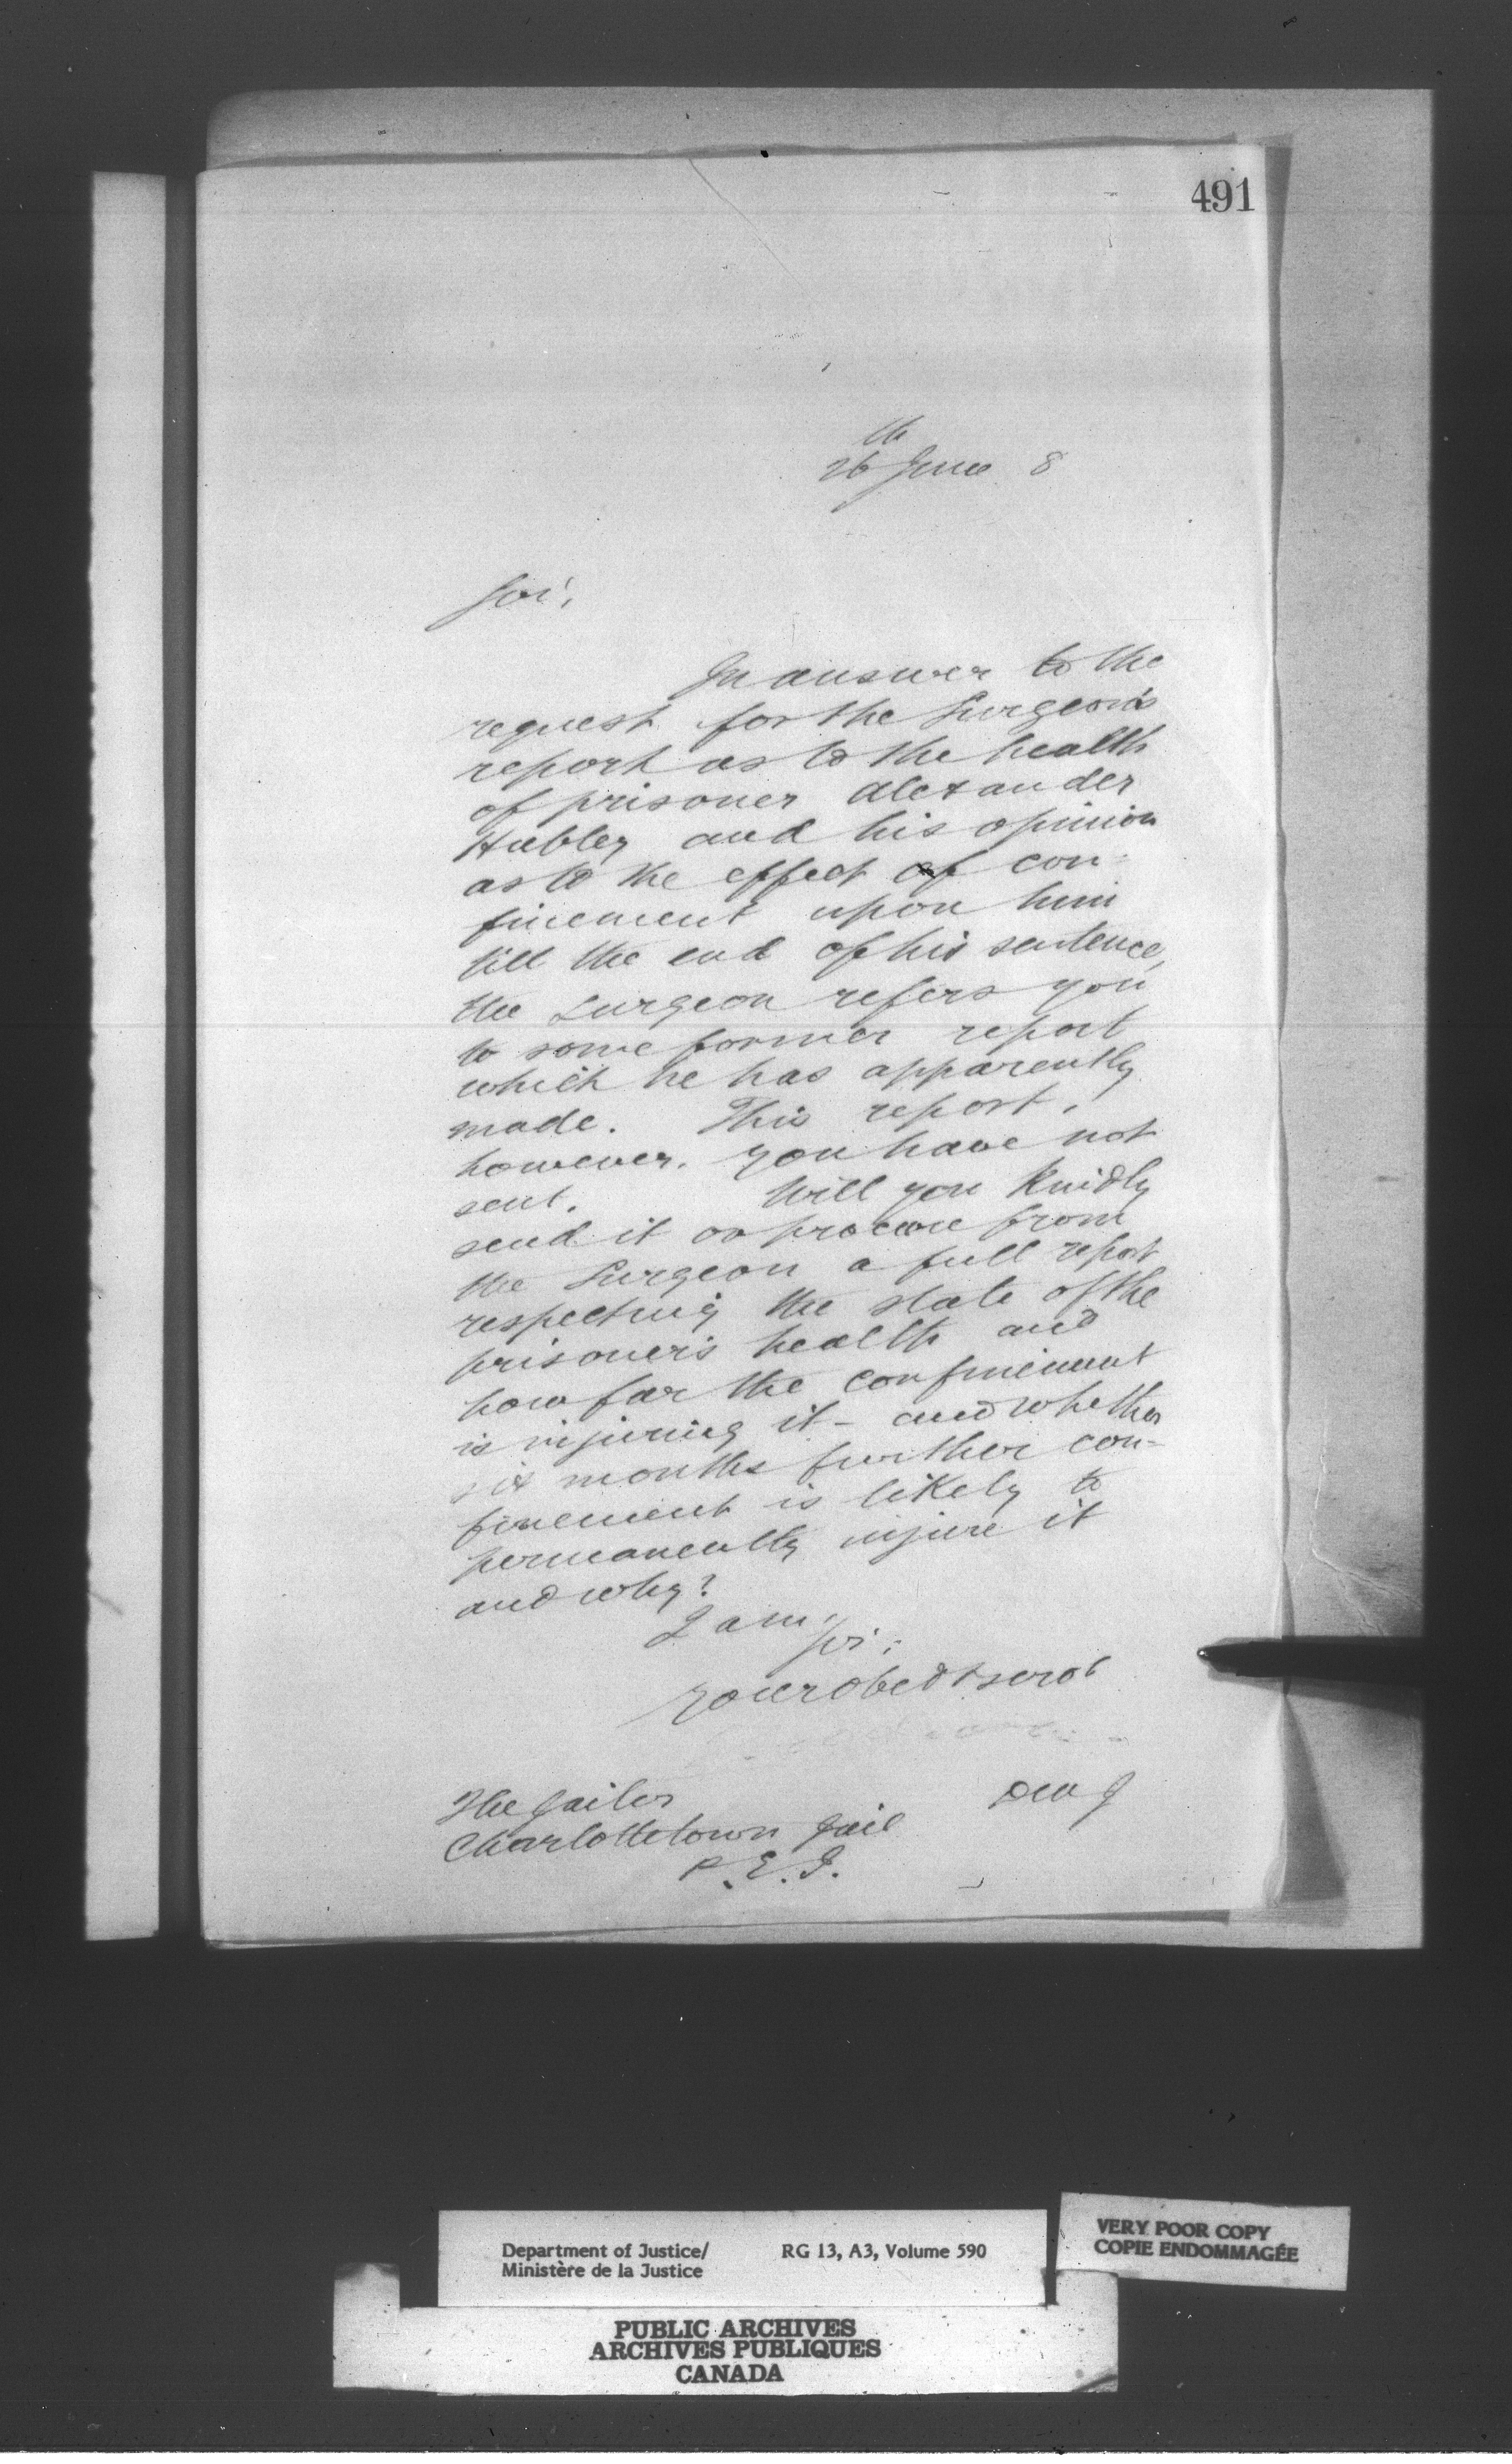 491
26th June 8
Sir,
In answer to the
request for the Surgeon's
report as to the health
of prisoner Alexander
Hubley and his opinion
as to the effect of con-
finement upon him
till the end of his sentence,
the Surgeon refers you
to some former report
which he has apparently
made. This report,
however, you have not
sent. Will you kindly
send it or procure from
the Surgeon a full report
respecting the state of the
prisoner's health and
how far the confinement
is injuring it - and whether
six months further con-
finement is likely to
permanently injure it
and why?
I am,
Sir,
Your obedt servt
D M J
The Jailer
Charlottetown Jail
P.E.I.
Department of Justice/ RG 13, A3, Volume 590
Ministère de la Justice
VERY POOR COPY
COPIE ENDOMMAGÉE
PUBLIC ARCHIVES
ARCHIVES PUBLIQUES
CANADA